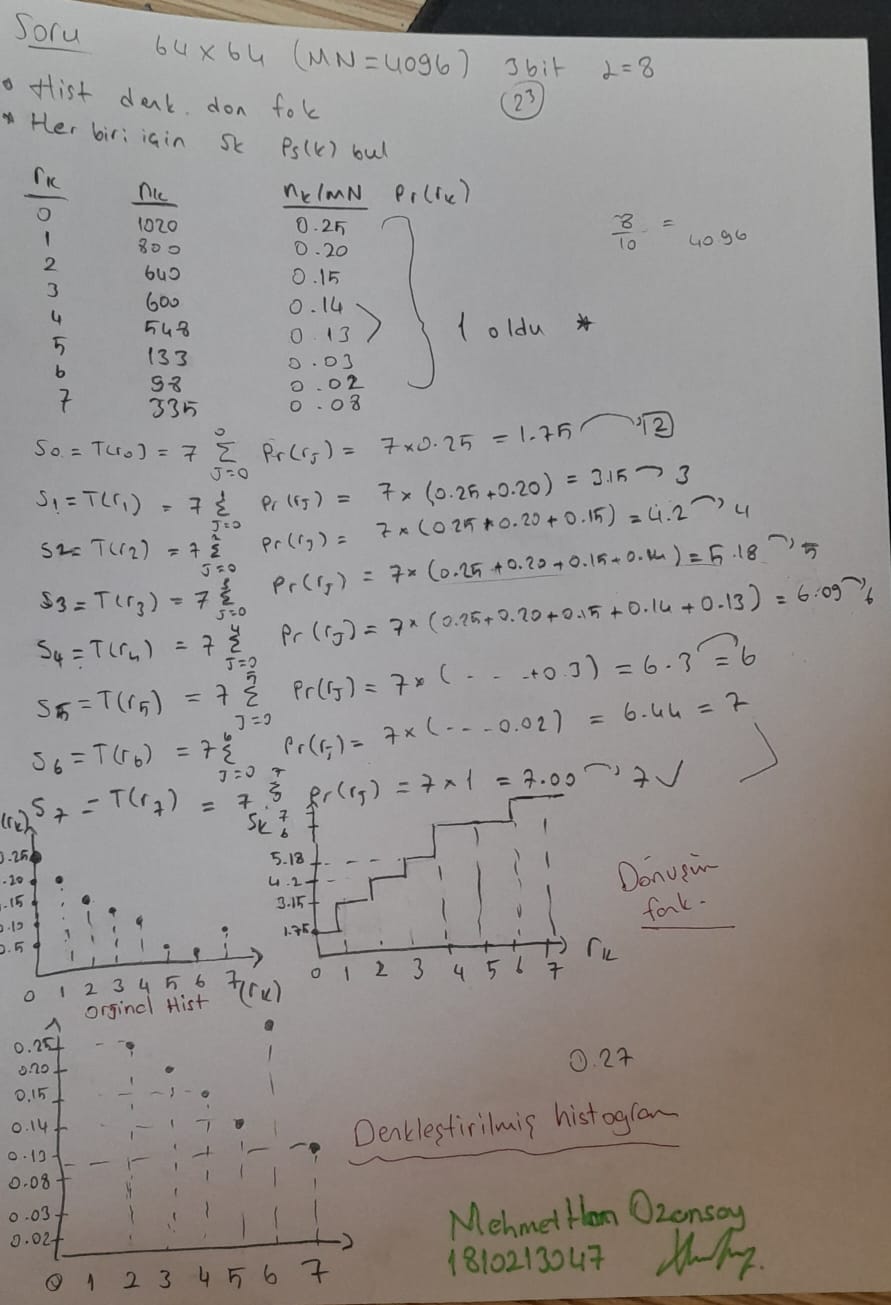 Soru 64x64 (MN=4096) 3bit L=8
• Hist denk. don fok (2³)
* Her biri için Sk Ps(k) bul
rk nk nk/MN Pr(rk)
0 1020 0.25
1 800 0.20
2 640 0.15
3 600 0.14
4 548 0.13
5 133 0.03
6 98 0.02
7 335 0.08
1 oldu *
8/10 = 4096
S0 = T(r0) = 7 Σ j=0 0 Pr(rj) = 7x0.25 = 1.75 → 2
S1 = T(r1) = 7 Σ j=0 Pr(rj) = 7x(0.25+0.20) = 3.15 → 3
S2 = T(r2) = 7 Σ j=0 2 Pr(rj) = 7x(0.25+0.20+0.15) = 4.2 → 4
S3 = T(r3) = 7 Σ j=0 3 Pr(rj) = 7x(0.25+0.20+0.15+0.14) = 5.18 → 5
S4 = T(r4) = 7 Σ j=0 4 Pr(rj) = 7x(0.25+0.20+0.15+0.14+0.13) = 6.09 → 6
S5 = T(r5) = 7 Σ j=0 5 Pr(rj) = 7x(---+0.3) = 6.3 = 6
S6 = T(r6) = 7 Σ j=0 6 Pr(rj) = 7x(---0.02) = 6.44 = 7
S7 = T(r7) = 7 Σ 7 Pr(rj) = 7x1 = 7.00 → 7 ✓
(rk)
0.25
.20
.15
0.10
0.5
0 1 2 3 4 5 6 7 (rk)
Orginal Hist
Sk
7
6
5.18
4.2
3.15
1.75
0 1 2 3 4 5 6 7 rk
Dönüşüm
fonk.
0.25
0.20
0.15
0.14
0.13
0.08
0.03
0.02
0 1 2 3 4 5 6 7
0.27
Denkleştirilmiş histogram
Mehmet Han Ozansoy
1810213047